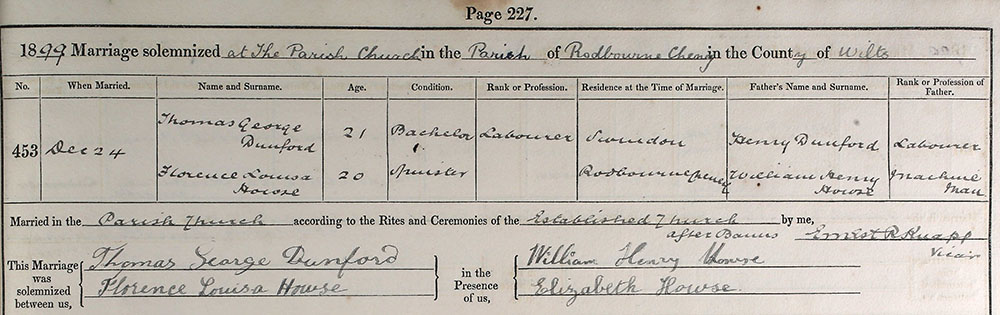 Page 227.
1899 Marriage solemnized at The Parish Church in the Parish of Rodbourne Cheney in the County of Wilts
No. When Married. Name and Surname. Age. Condition. Rank or Profession. Residence at the Time of Marriage. Father's Name and Surname. Rank or Profession of Father.
453 Dec 24
Thomas George Dunford 21 Bachelor Labourer Swindon Henry Dunford Labourer
Florence Louisa Howse 20 Spinster Rodbourne Cheney William Henry Howse Machine Man
Married in the Parish Church according to the Rites and Ceremonies of the Established Church by me,
after Banns Ernest R Knapp
Vicar
This Marriage was solemnized between us, Thomas George Dunford
Florence Louisa Howse
in the Presence of us, William Henry Howse
Elizabeth Howse